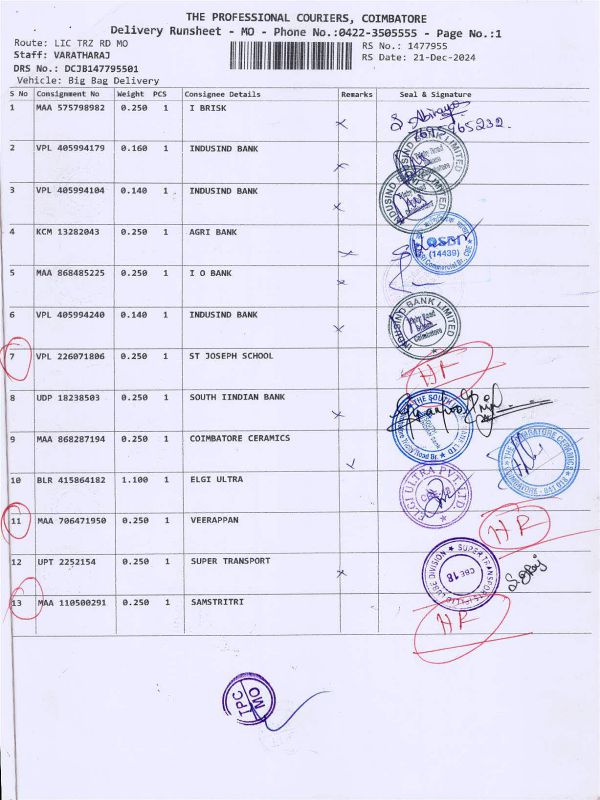 THE PROFESSIONAL COURIERS, COIMBATORE
Delivery Runsheet - MO - Phone No.:0422-3505555 - Page No.:1
Route: LIC TRZ RD MO RS No.: 1477955
Staff: VARATHARAJ RS Date: 21-Dec-2024
DRS No.: DCJB147795501
Vehicle: Big Bag Delivery
S No Consignment No Weight PCS Consignee Details Remarks Seal & Signature
1 MAA 575798982 0.250 1 I BRISK
2 VPL 405994179 0.160 1 INDUSIND BANK
INDUSIND BANK LIMITED
3 VPL 405994104 0.140 1 INDUSIND BANK
INDUSIND BANK LIMITED
4 KCM 13282043 0.250 1 AGRI BANK
(14439)
5 MAA 868485225 0.250 1 I O BANK
6 VPL 405994240 0.140 1 INDUSIND BANK
INDUSIND BANK LIMITED
7 VPL 226071806 0.250 1 ST JOSEPH SCHOOL HR
8 UDP 18238503 0.250 1 SOUTH IINDIAN BANK
9 MAA 868287194 0.250 1 COIMBATORE CERAMICS
10 BLR 415864182 1.100 1 ELGI ULTRA
ELGI ULTRA PVT LTD
11 MAA 706471950 0.250 1 VEERAPPAN HR
12 UPT 2252154 0.250 1 SUPER TRANSPORT
CBE 18
13 MAA 110500291 0.250 1 SAMSTRITRI HR
TPC
MO